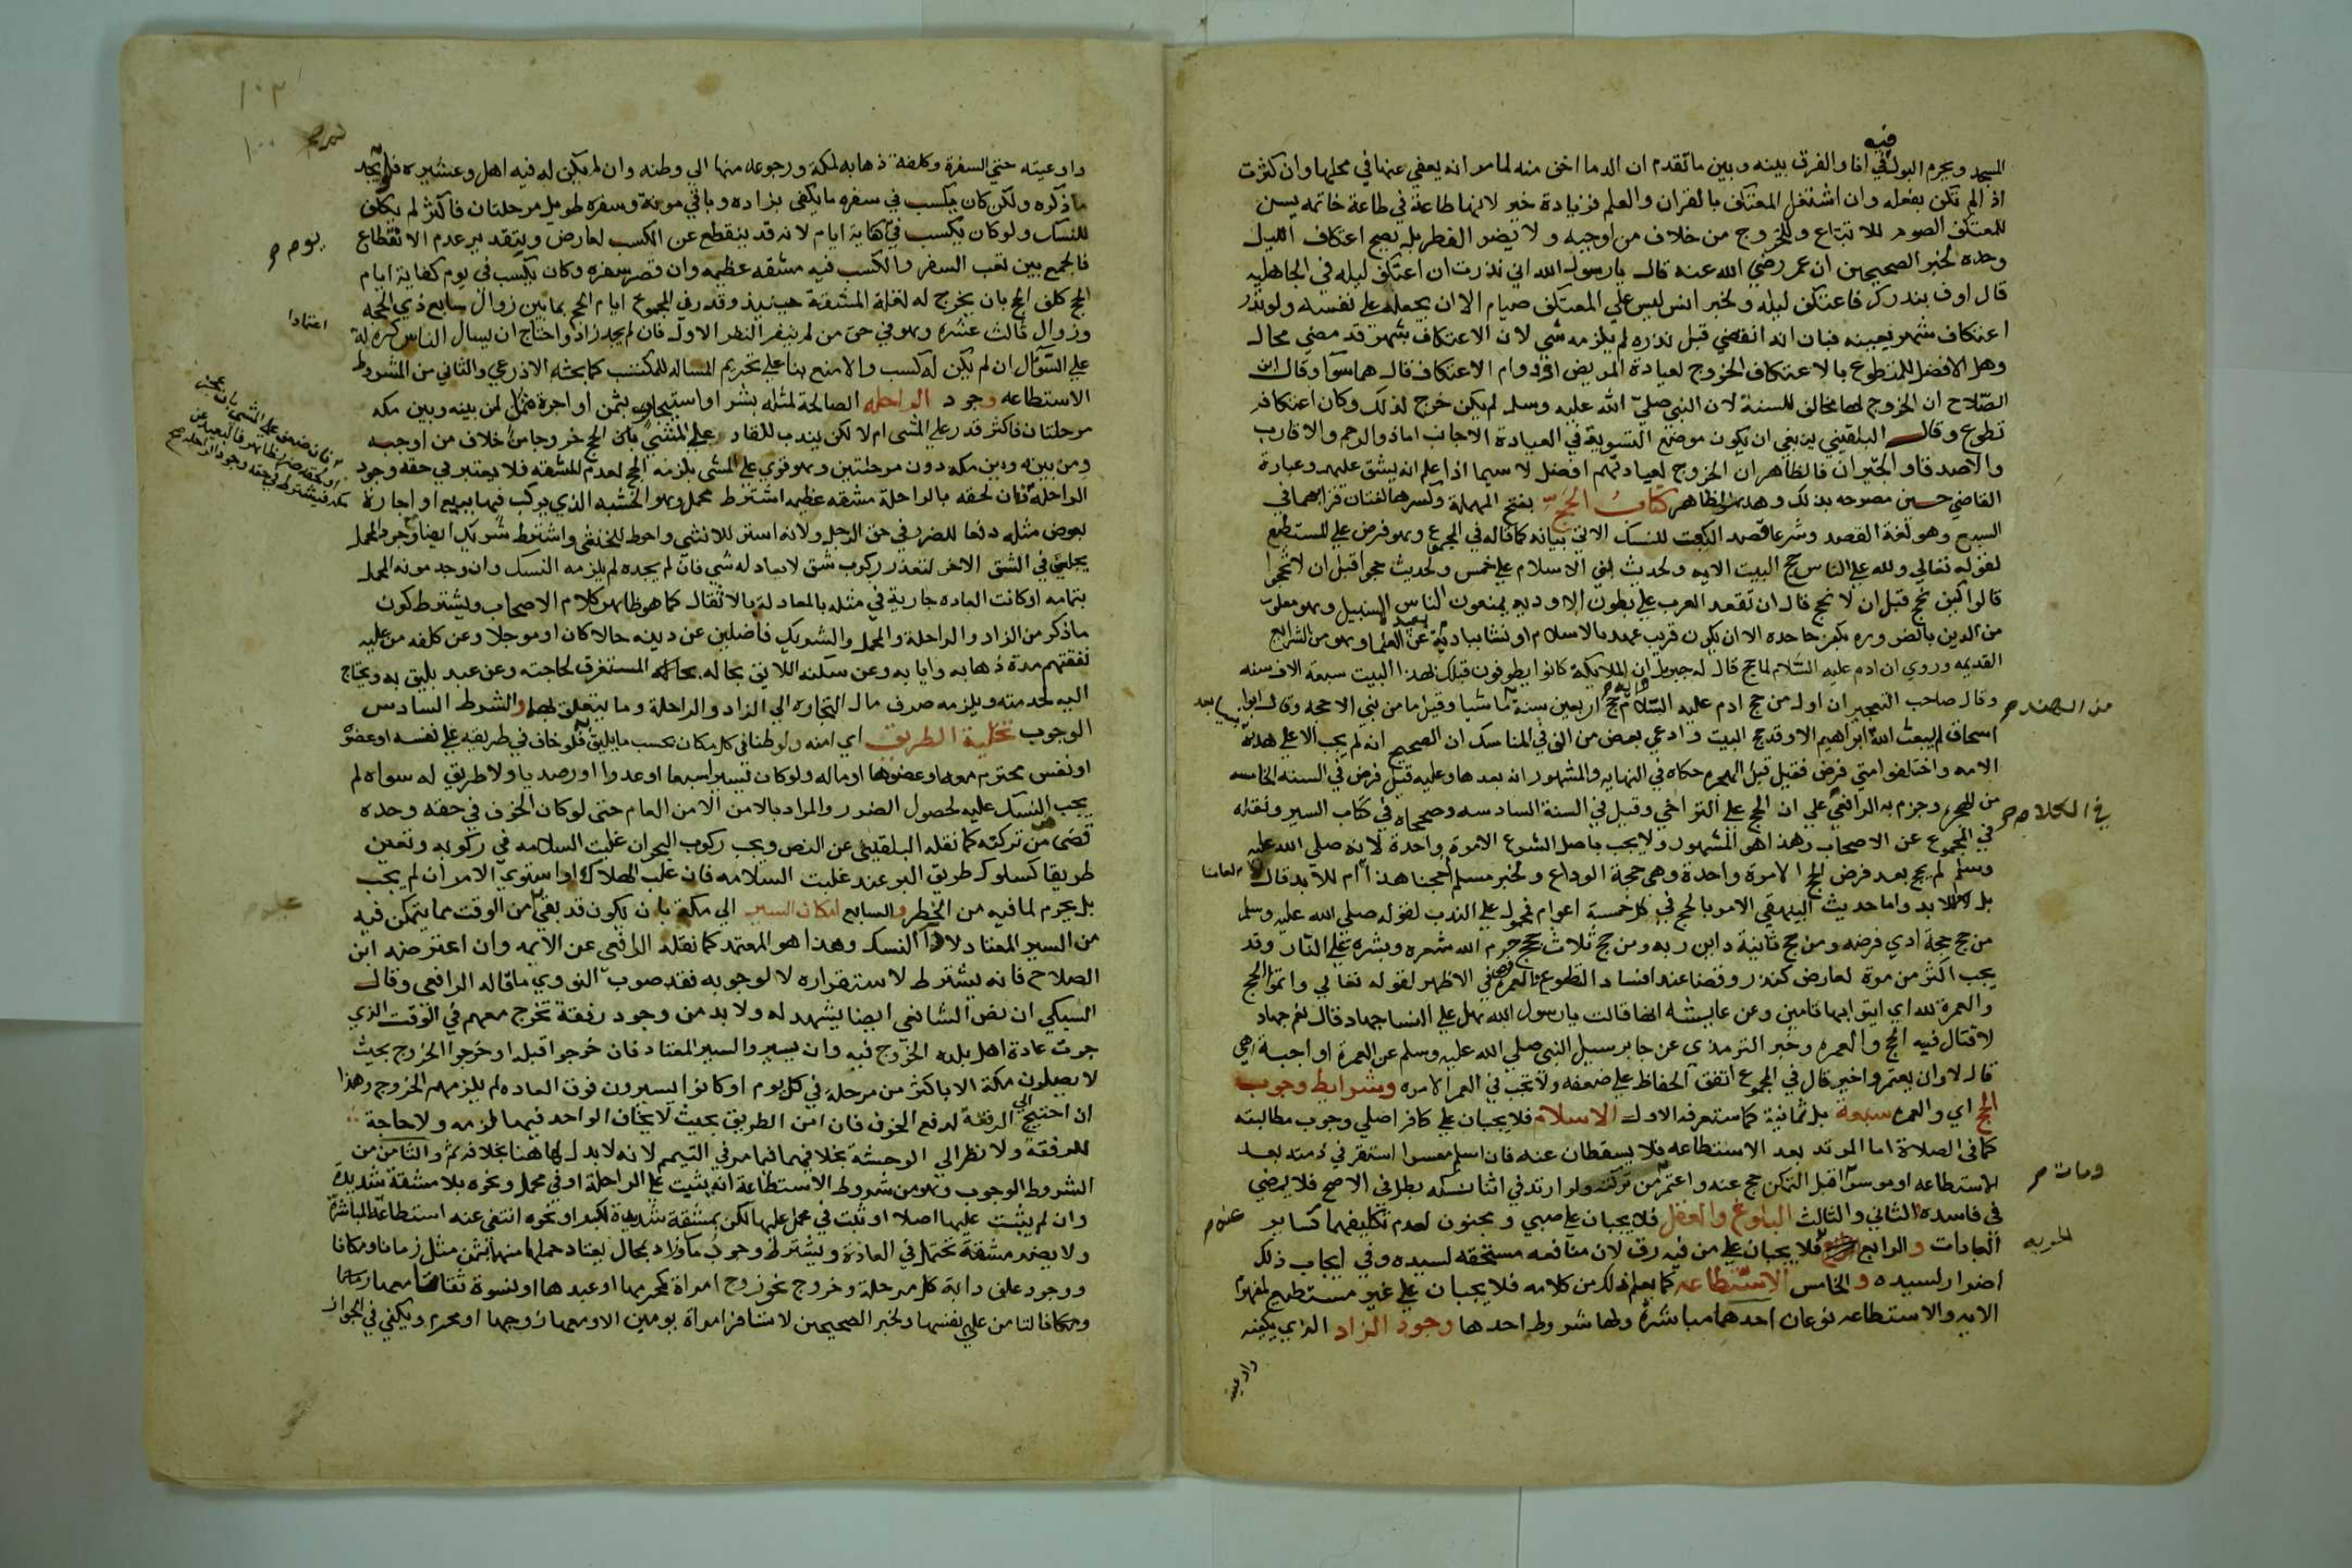 المسجد ويحرم البول فيه في انا والفرق بينه وبين ما تقدم ان الدما اخف منه لما مر انه يعفي عنها في محلها وان كثرت
اذ الم تكن بفعله وان اشتغل المعتكف بالقران والعلم فزيادة خير لانها طاعة في طاعة خاتمه يسن
للمعتكف الصوم للاتباع وللخروج من خلاف من اوجبه ولا يضر الفطر بل يصح اعتكاف الليل
وحده لخبر الصحيحين ان عمر رضي الله عنه قال يا رسول الله اني نذرت ان اعتكف ليله في الجاهليه
قال اوف بنذرك فاعتكف ليله ولخبر انس ليس علي المعتكف صيام الا ان يجعله علي نفسه ولو نذر
اعتكاف شهر بعينه فبان انه انقضي قبل نذره لم يلزمه شي لان الاعتكاف شهر قد مضي محال
وهل الافضل للمتطوع بالاعتكاف الخروج لعيادة المريض او دوام الاعتكاف قال هما سوا وقال ابن
الصلاح ان الخروج لها مخالف للسنة لان النبي صلي الله عليه وسلم لم يكن خرج لذلك وكان اعتكافه
تطوع وقال البلقيني ينبغي ان يكون موضع التسوية في العيادة الاجانب اما ذو الرحم والاقارب
والاصدقا والجيران فالظاهر ان الخروج لعيادتهم افضل لا سيما اذا علم انه يشق عليهم وعبارة
القاضي حسين مصرحه بذلك وهذا هو الظاهر كتاب الحج بفتح المهملة وكسرها لغتان قرا بهما في
السبع وهو لغة القصد وشرعا قصد الكعبت للنسك الاتي بيانه كما قاله في المجموع وهو فرض علي المستطيع
لقوله تعالي ولله علي الناس حج البيت الايه ولحديث بني الاسلام علي خمس ولحديث حجوا قبل ان لا تحجوا
قالوا كيف نحج قبل ان لا نحج قال ان تقعد العرب علي بطون الاوديه يمنعون الناس السبيل وهو معلوم
من الدين بالضروره يكفر جاحده الا ان يكون قريب عهد بالاسلام او نشا ببادية بعيدة عن العلما وهو من الشرايع
القديمه وروي ان ادم عليه السلام لما حج قال له جبريل ان الملايكة كانوا يطوفون قبلك بهذا البيت سبعة الاف سنه
وقال صاحب التعجيز ان اول من حج ادم عليه السلام حج اربعين سنة ماشيا وقيل ما من نبي الا حجه وقال ابو
من الهند صح
اسحاق لم يبعث الله ابراهيم الا وقد حج البيت وادعي بعض من الف في المناسك ان الصحيح انه لم يجب الا علي هذه
الامه واختلفوا متي فرض فقيل قبل الهجره حكاه في النهايه والمشهور انه بعدها وعليه قيل فرض في السنه الخامسه
من الهجره وجزم به الرافعي في الكلام صح علي ان الحج علي التراخي وقيل في السنة السادسه وصححاه في كتاب السير ونقله
في المجموع عن الاصحاب وهذا هو المشهور ولا يجب باصل الشرع الا مرة واحدة لانه صلي الله عليه
وسلم لم يحج بعد فرض الحج الا مرة واحدة وهي حجة الوداع ولخبر مسلم احجنا هذا لعامنا ام للابد قال لا
بل للابد واما حديث البيهقي الامر بالحج في كل خمسة اعوام فمحمول علي الندب لقوله صلي الله عليه وسلم
من حج حجة ادي فرضه ومن حج ثانية داين ربه ومن حج ثلاث حجج حرم الله شعره وبشره علي النار وقد
يجب اكثر من مرة لعارض كنذر وقضا عند افساد التطوع والعمرة فرض في الاظهر لقوله تعالي واتموا الحج
والعمرة لله اي ايتوا بهما تامين وعن عايشه انها قالت يا رسول الله هل علي النسا جهاد قال نعم جهاد
لا قتال فيه الحج والعمره وخبر الترمذي عن جابر سيل النبي صلي الله عليه وسلم عن العمرة اواجبة هي
قال لا وان يعتمر واخير قال في المجموع اتفق الحفاظ علي ضعفه ولا تجب في العمر الا مره وشرايط وجوب
الحج اي والعمره سبعة بل ثمانية كما ستعرفه الاول الاسلام فلا يجبان علي كافر اصلي وجوب مطالبته
كما في الصلاة اما المرتد بعد الاستطاعه فلا يسقطان عنه فان اسلم معسرا استقر في ذمته بعد
الاستطاعه او موسرا ومات صح قبل التمكن حج عنه واعتمر من تركته ولو ارتد في اثنا نسكه بطل في الاصح فلا يمضي
في فاسده الثاني والثالث البلوغ والعقل فلا يجبان علي صبي ومجنون لعدم تكليفهما كساير
العبادات والرابع الحريه فلا يجبان علي من فيه رق لان منافعه مستحقه لسيده وفي ايجاب ذلك
اضرار لسيده والخامس الاستطاعه كما يعلم ذلك من كلامه فلا يجبان علي غير مستطيع لمفهوم
الايه والاستطاعه نوعان احدهما مباشرة ولها شروط احدها وجود الزاد الذي يكفيه
واوعيته
١٠٢
١٠٠
واوعيته حتي السفرة وكلفة ذهابه لمكة ورجوعه منها الي وطنه وان لم يكن له فيه اهل وعشيره فلو لم يجد
ما ذكره ولكن كان يكسب في سفره ما يكفي بزاده وباقي مونة وسفره طويل مرحلتان فاكثر لم يكلف
للنسك ولو كان يكسب في يوم صح كفاية ايام لانه قد ينقطع عن الكسب لعارض وبتقدير عدم الانقطاع
فالجمع بين تعب السفر والكسب فيه مشقه عظيمه وان قصر سفره وكان يكسب في يوم كفاية ايام
الحج كلف الحج بان يخرج له لقلة المشقة حينيذ وقدر في المجموع ايام الحج بما بين زوال سابع ذي الحجه
وزوال ثالث عشره وهو في حق من لم ينفر النفر الاول فان لم يجد زاد واحتاج ان يسال الناس كره له اعتمادا
علي السوال ان لم يكن له كسب والا منع بنا علي تحريم المساله للمكتسب كما بحثه الاذرعي والثاني من الشروط
الاستطاعه وجود الراحله الصالحة لمثله بشرا او استيجار بثمن او اجرة مثل لمن بينه وبين مكه
مرحلتان فاكثر قدر علي المشي ام لا لكن يندب للقادر علي المشي بان الحج خروجا من خلاف من اوجبه
ومن بينه وبين مكه دون مرحلتين وهو قوي علي المشي يلزمه الحج لعدم المشقه فلا يعتبر في حقه وجود
الراحلة فان لحقه بالراحلة مشقه عظيمه اشترط محمل وهو الخشبه الذي يركب فيها ببيع او اجارة
فان ضعف علي المشي بان عجز
او لحقه ضرر ظاهر فالبعيد عن
مكه فيشترط في حقه وجود الراحله صح
بعوض مثله دفعا للضرر في حق الرجل ولانه استر للانثي واحوط للخنثي واشترط شريك ايضا مع وجود المحمل
يجلس في الشق الاخر لتعذر ركوب شق لا يعادله شي فان لم يجده لم يلزمه النسك وان وجد مونه المحمل
بتمامه او كانت العاده جارية في مثله بالمعادلة بالاثقال كما هو ظاهر كلام الاصحاب ويشترط كون
ما ذكر من الزاد والراحلة والمحمل والشريك فاضلين عن دينه حالا كان او موجلا وعن كلفه من عليه
نفقتهم مدة ذهابه وايابه وعن سكنه اللايق بحاله المستغرق لحاجته وعن عبد يليق به ويحتاج
اليه لخدمته ويلزمه صرف مال التجاره الي الزاد والراحلة وما يتعلق بهما والشرط السادس
الوجوب تخلية الطريق اي امنه ولو ظنا في كل مكان بحسب ما يليق به فلو خاف في طريقه علي نفسه او عضوه
او نفس محترمه معه او عضوها او ماله ولو كان يسيرا سبعا او عدوا او رصديا ولا طريق له سواه لم
يجب النسك عليه لحصول الضرر والمراد بالامن الامن العام حتي لو كان الخوف في حقه وحده
قضي من تركته كما نقله البلقيني عن النص ويجب ركوب البحر ان غلبت السلامه في ركوبه وتعين
طريقا كسلوك طريق البر عند غلبت السلامه فان غلب الهلاك او استوي الامران لم يجب
بل يحرم لما فيه من الخطر والسابع امكان السير الي مكة بان يكون قد بقي من الوقت مما يتمكن فيه
من السير المعتاد لادا النسك وهذا هو المعتمد كما نقله الرافعي عن الايمه وان اعترضه ابن
الصلاح فانه يشترط لاستقراره لا لوجوبه فقد صوب النووي ما قاله الرافعي وقال
السبكي ان نص الشافعي ايضا يشهد له ولا بد من وجود رفقة تخرج معهم في الوقت الذي
جرت عادة اهل بلده الخروج فيه وان يسير والسير المعتاد فان خرجوا قبله او خرجوا الخروج بحيث
لا يصلون مكة الا باكثر من مرحلة في كل يوم او كانوا يسيرون فوق العاده لم يلزمهم الخروج وهذا
ان احتيج الي الرفقة لدفع الخوف فان امن الطريق بحيث لا يخاف الواحد فيها لزمه ولا حاجة
للرفقة ولا نظر الي الوحشة بخلافهما فيما مر في التيمم لانه لا بد لها هنا بخلافه ثم والثامن من
الشروط الوجوب وهو من شروط الاستطاعة ان يثبت علي الراحلة او في محمل ونحوه بلا مشقة شديدة
وان لم يثبت عليها اصلا او ثبت في محمل عليها لكن بمشقة شديدة لكبر او نحوه انتفي عنه استطاعة المباشرة
ولا يضر مشقة تحتمل في العادة ويشترط وجود ما وزاد بمحال يعتاد حملها منها بثمن مثل زمانا ومكانا
ووجود علف دابة كل مرحلة وخروج نحو زوج امراة كمحرمها او عبدها او نسوة ثقات معها
ومكانا لتامن علي نفسها ولخبر الصحيحين لا تسافر امراة يومين الا ومعها زوجها او محرم ويكفي في الجواز